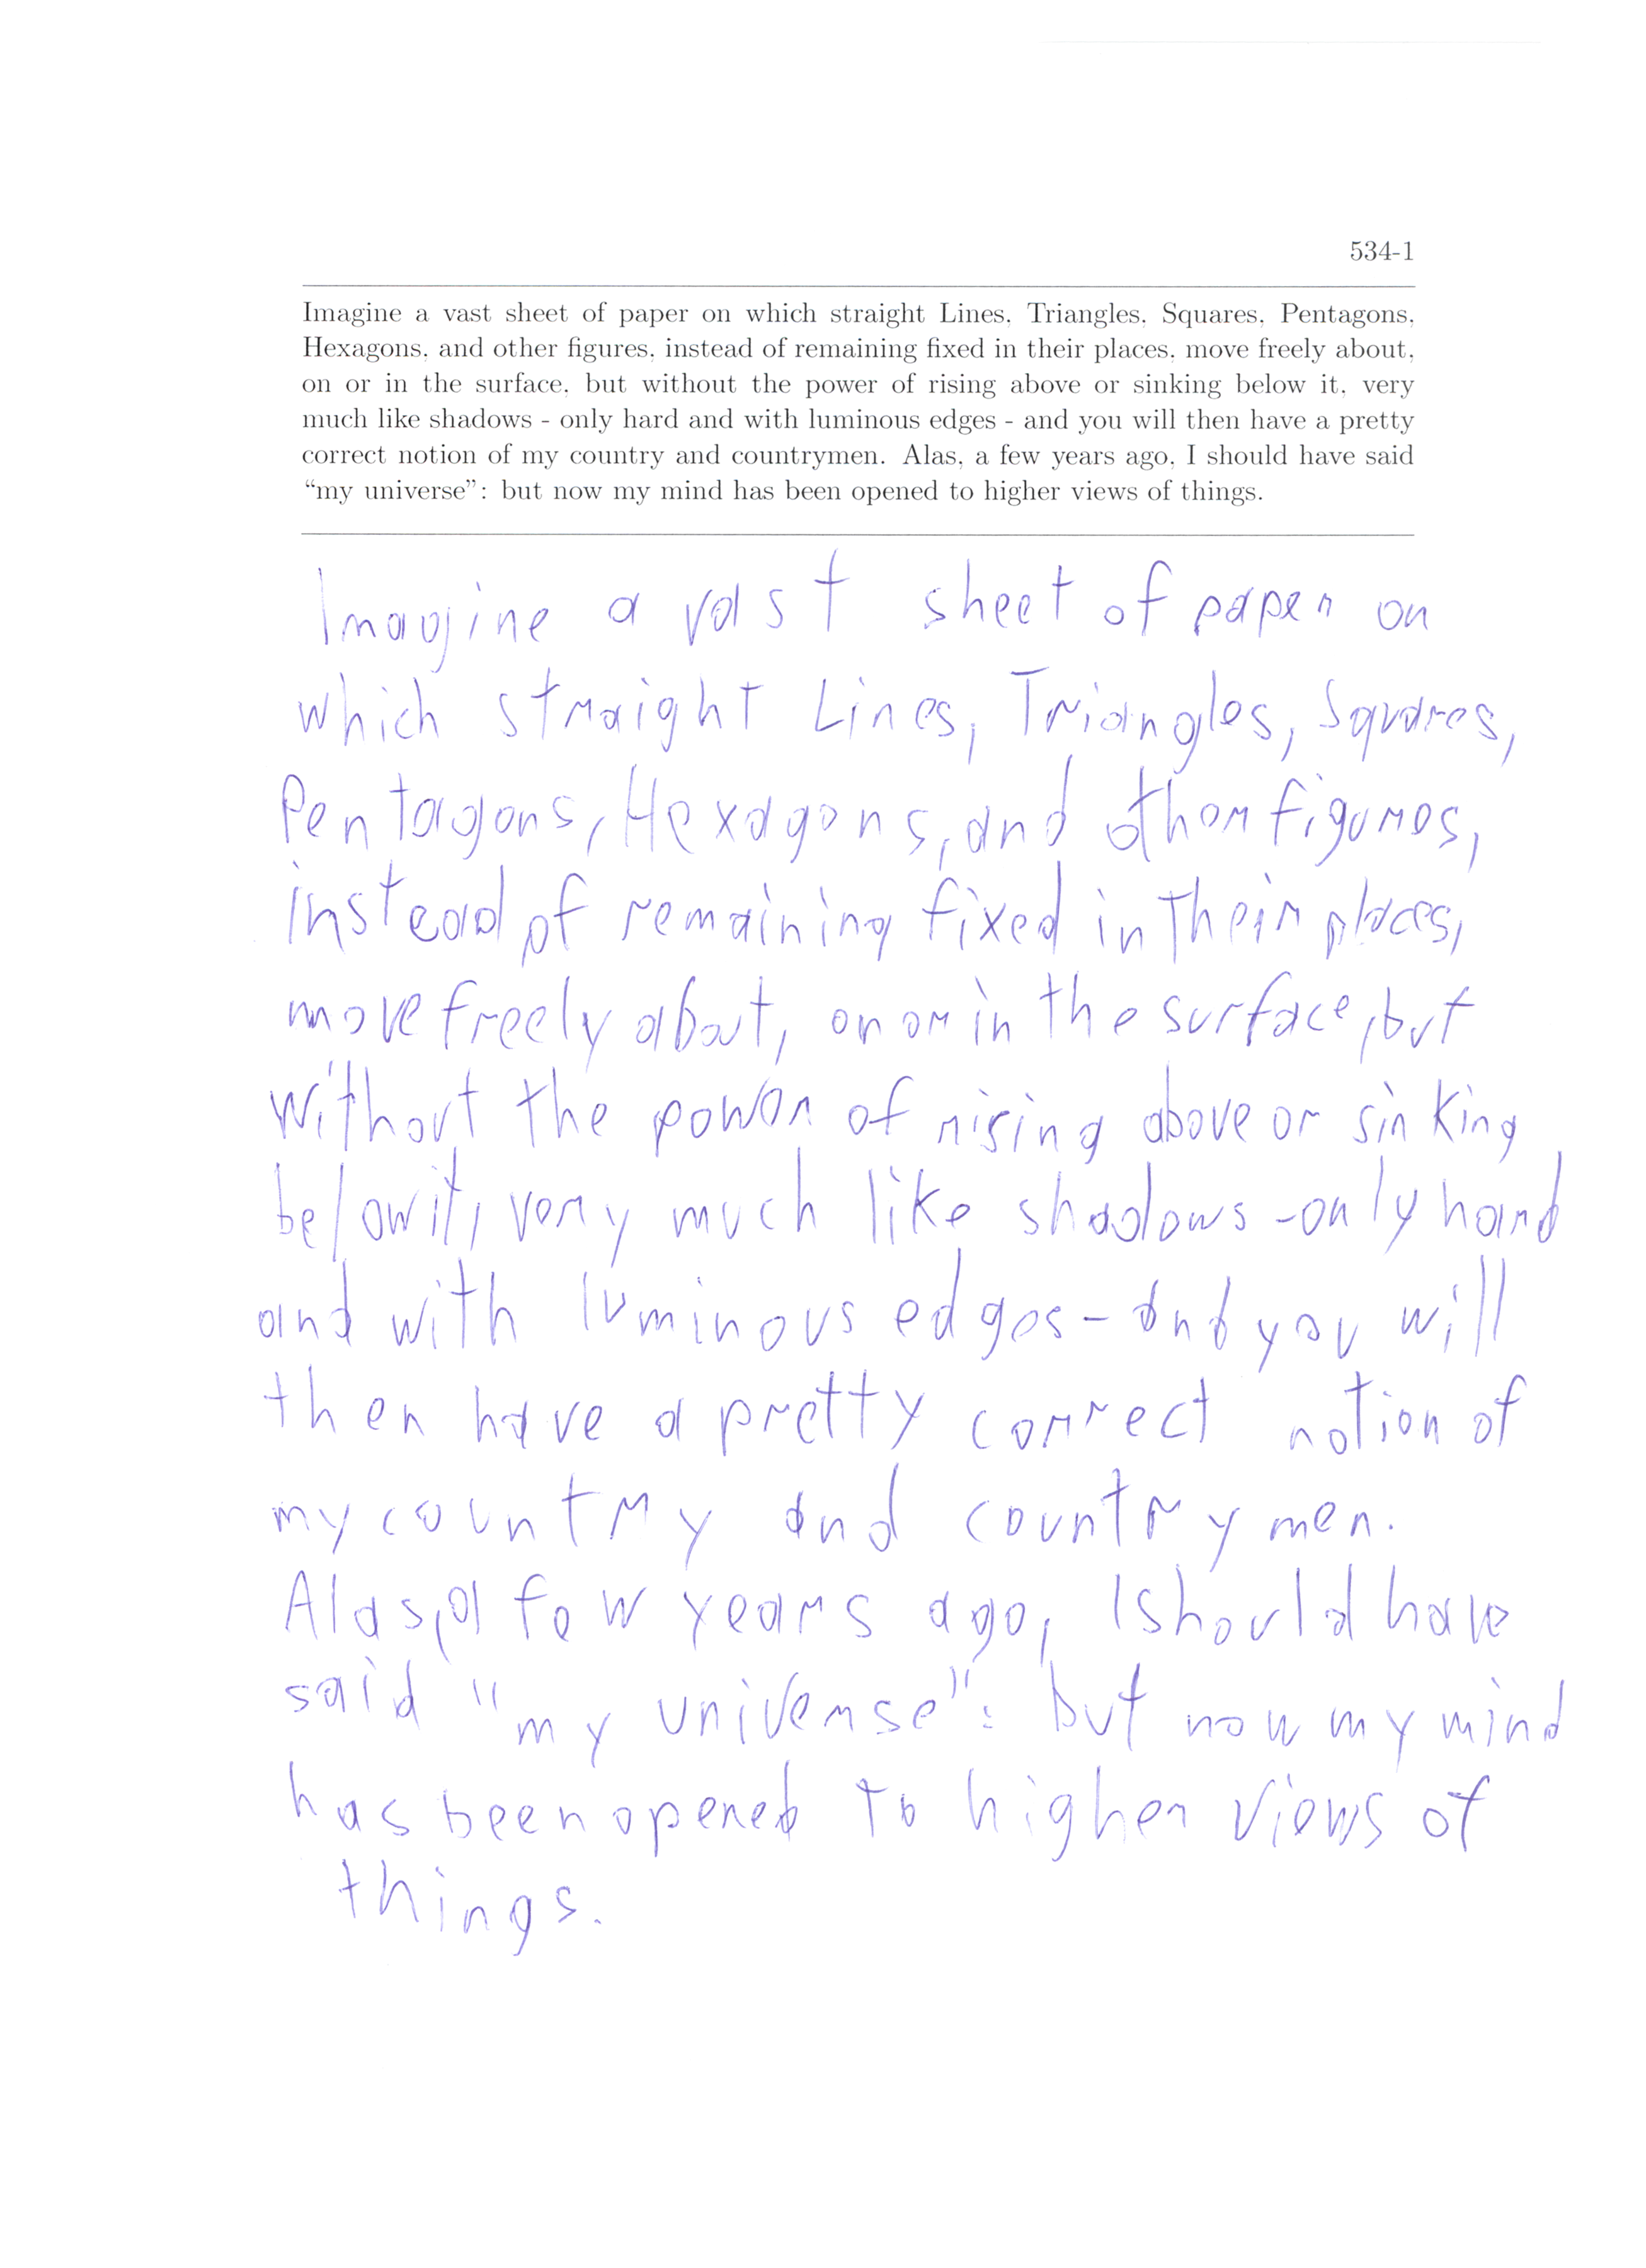 534-1
Imagine a vast sheet of paper on which straight Lines, Triangles, Squares, Pentagons,
Hexagons, and other figures, instead of remaining fixed in their places, move freely about,
on or in the surface, but without the power of rising above or sinking below it, very
much like shadows - only hard and with luminous edges - and you will then have a pretty
correct notion of my country and countrymen. Alas, a few years ago, I should have said
“my universe”: but now my mind has been opened to higher views of things.
Imagine a vast sheet of paper on
which straight Lines, Triangles, Squares,
Pentagons, Hexagons, and other figures,
instead of remaining fixed in their places,
move freely about, on or in the surface, but
without the power of rising above or sinking
below it, very much like shadows - only hard
and with luminous edges - and you will
then have a pretty correct notion of
my country and countrymen.
Alas, a few years ago, I should have
said "my universe": but now my mind
has been opened to higher views of
things.